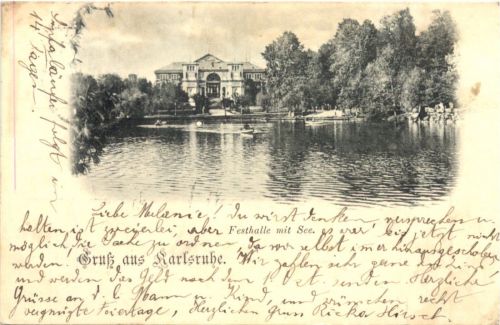 14 Tagen.
folgt in
Liebe Melanie! Du wirst denken, versprechen u
halten ist zweierlei, aber
Festhalle mit See.
es war bis jetzt nicht
möglich die Sache zu ordnen, da wir selbst immer hinausgeschoben
werden!
Gruß aus Karlsruhe.
Wir zahlen sehr gerne
und werden das Geld nach dem 1 Oct. senden. Herzliche
Grüsse an d. l. Mann u. Kind, und wünschen recht
vergnügte Feiertage, Herzlichen Gruss Ricka Hirsch.